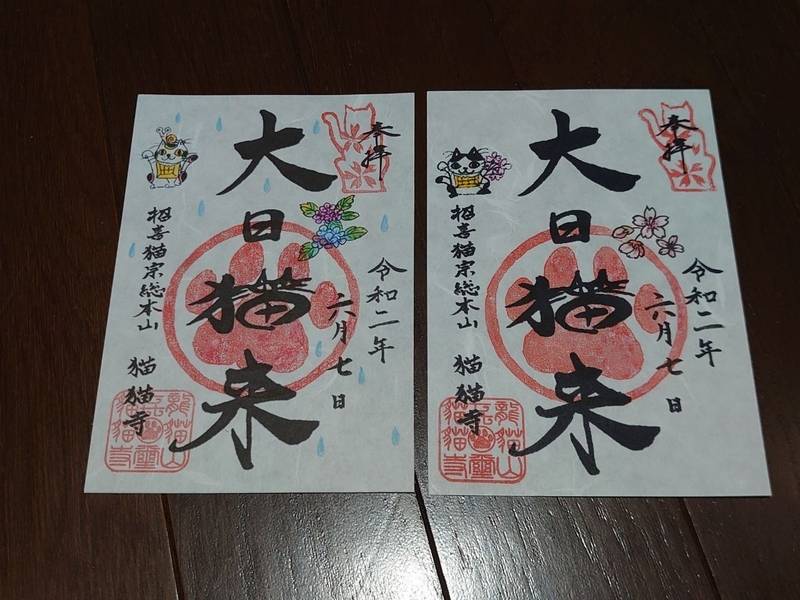 奉拝
令和二年
六月七日
大日猫来
招喜猫宗総本山 猫猫寺
龍猫山
猫猫寺
奉拝
令和二年
六月七日
大日猫来
招喜猫宗総本山 猫猫寺
龍猫山
猫猫寺